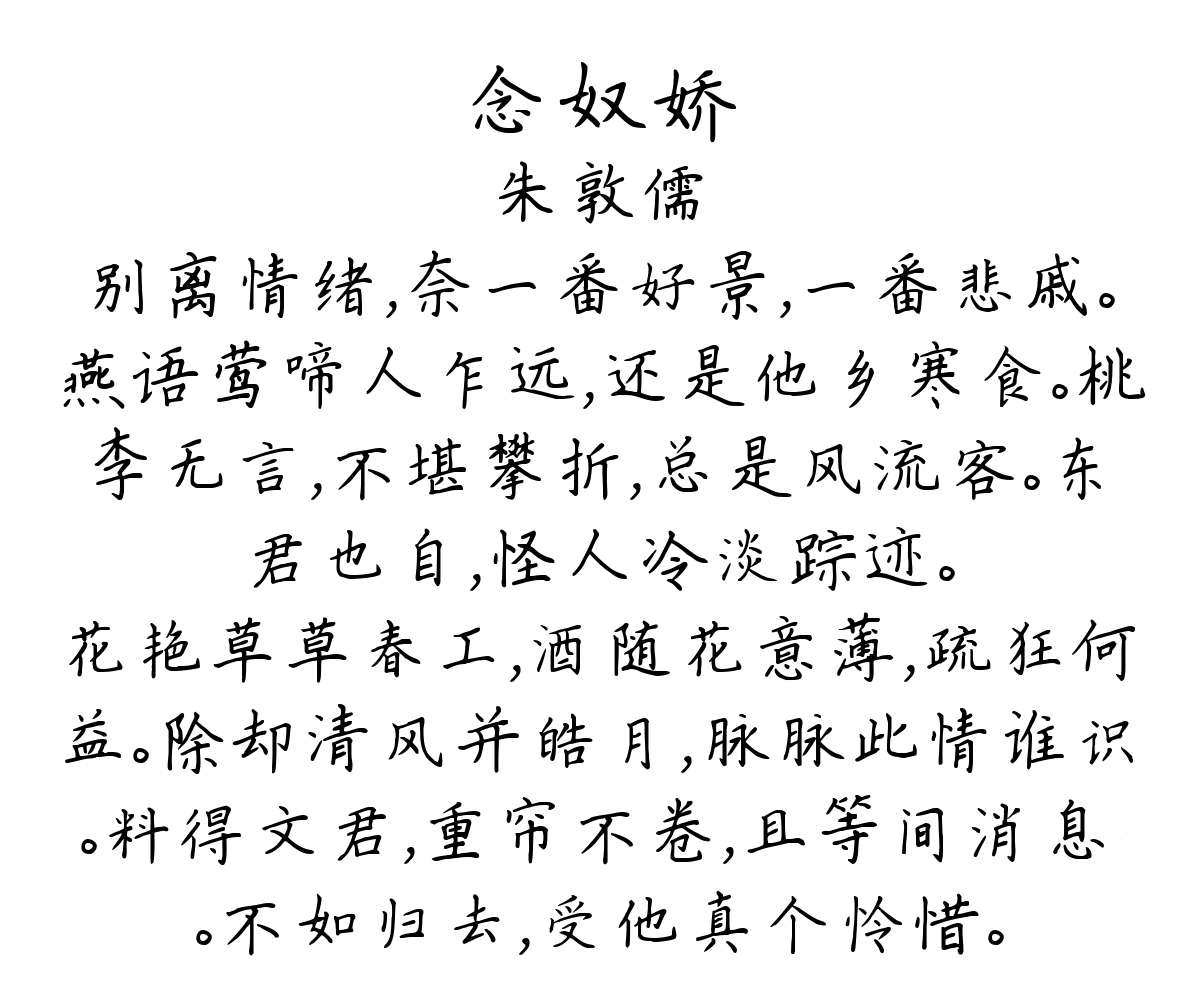 念奴娇
朱敦儒
别离情绪,奈一番好景,一番悲戚。
燕语莺啼人乍远,还是他乡寒食。桃
李无言,不堪攀折,总是风流客。东
君也自,怪人冷淡踪迹。
花艳草草春工,酒随花意薄,疏狂何
益。除却清风并皓月,脉脉此情谁识
。料得文君,重帘不卷,且等间消息
。不如归去,受他真个怜惜。